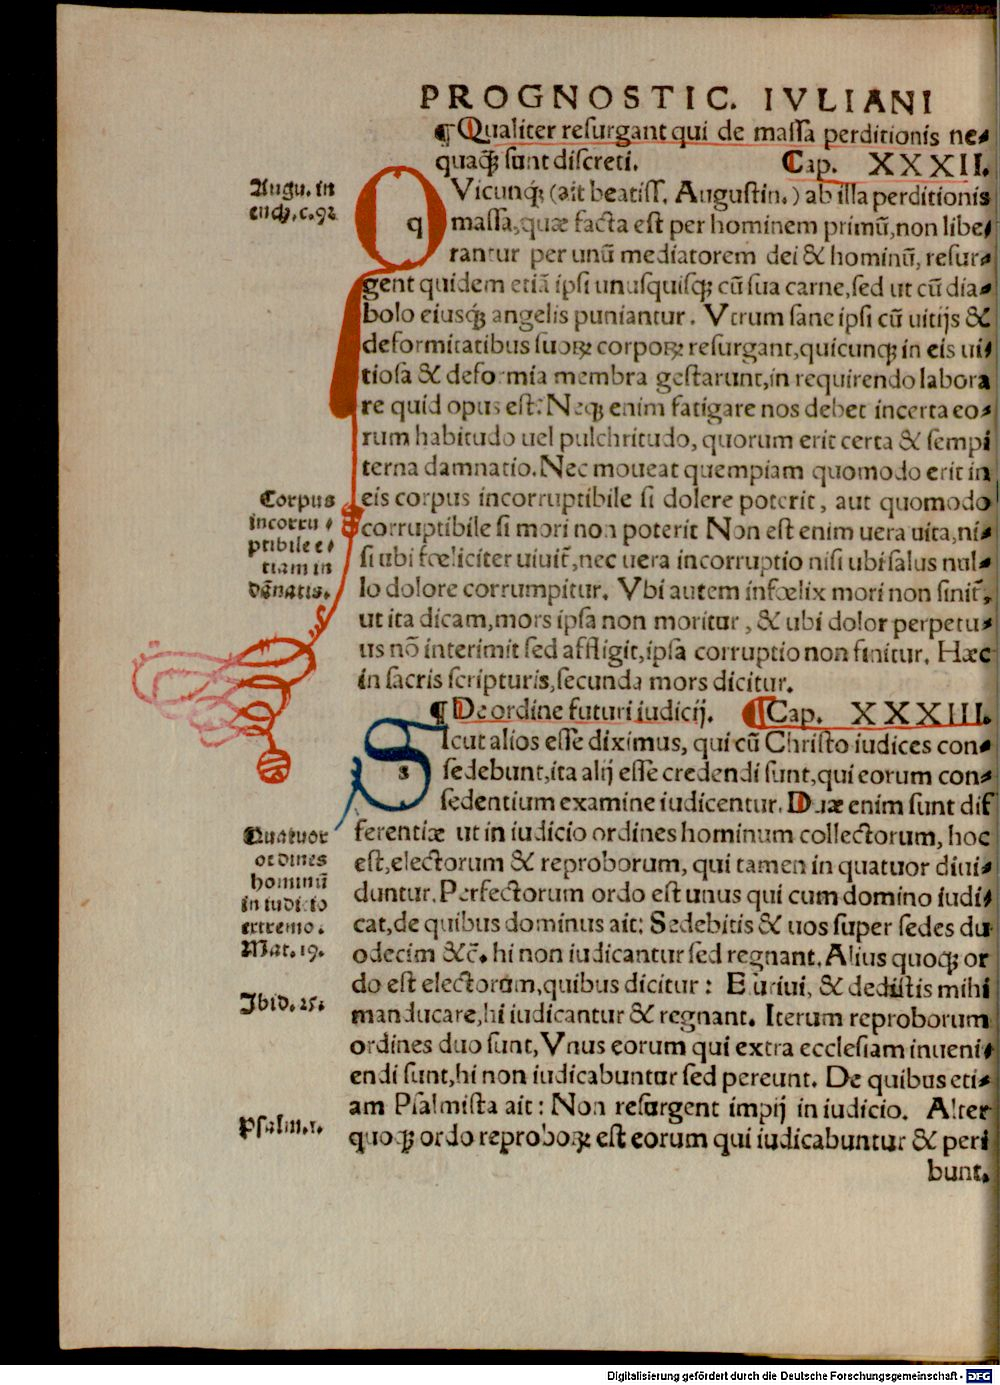 PROGNOSTIC. IVLIANI
¶ Qualiter resurgant qui de massa perditionis ne-
quaq̃ sunt discreti. Cap. XXXII.
Augu. in
ench. c. 92
QVicunq; (ait beatiss. Augustin.) ab illa perditionis
massa, quæ facta est per hominem primũ, non libe-
rantur per unũ mediatorem dei & hominũ, resur-
gent quidem etiã ipsi unusquisq; cũ sua carne, sed ut cũ dia-
bolo eiusq; angelis puniantur. Vtrum sane ipsi cũ uitijs &
deformitatibus suoꝝ corpoꝝ resurgant, quicunq; in eis ui-
tiosa & deformia membra gestarunt, in requirendo labora
re quid opus est? Neq; enim fatigare nos debet incerta eo-
rum habitudo uel pulchritudo, quorum erit certa & sempi
terna damnatio. Nec moueat quempiam quomodo erit in
Corpus
incorru-
ptibile e-
tiam in
dãnatis.
eis corpus incorruptibile si dolere poterit, aut quomodo
corruptibile si mori non poterit Non est enim uera uita, ni-
si ubi fœliciter uiuit̃, nec uera incorruptio nisi ubi salus nul-
lo dolore corrumpitur. Vbi autem infœlix mori non sinit̃,
ut ita dicam, mors ipsa non moritur, & ubi dolor perpetu-
us nõ interimit sed affligit, ipsa corruptio non finitur. Hæc
in sacris scripturis, secunda mors dicitur.
¶ De ordine futuri iudicij. Cap. XXXIII.
SIcut alios esse diximus, qui cũ Christo iudices con-
sedebunt, ita alij esse credendi sunt, qui eorum con-
sedentium examine iudicentur. Duæ enim sunt dif
Quatuor
ordines
hominũ
in iudicio
extremo.
Mat. 19.
ferentiæ ut in iudicio ordines hominum collectorum, hoc
est, electorum & reproborum, qui tamen in quatuor diui-
duntur. Perfectorum ordo est unus qui cum domino iudi-
cat, de quibus dominus ait: Sedebitis & uos super sedes du
odecim &c̃. hi non iudicantur sed regnant. Alius quoq; or
Ibid. 25.
do est electorum, quibus dicitur: Esuriui, & dedistis mihi
manducare, hi iudicantur & regnant. Iterum reproborum
ordines duo sunt, Vnus eorum qui extra ecclesiam inueni-
endi sunt, hi non iudicabuntur sed pereunt. De quibus eti-
Psalm. 1.
am Psalmista ait: Non resurgent impij in iudicio. Alter
quoq; ordo reproboꝝ est eorum qui iudicabuntur & peri
bunt.
Digitalisierung gefördert durch die Deutsche Forschungsgemeinschaft - DFG